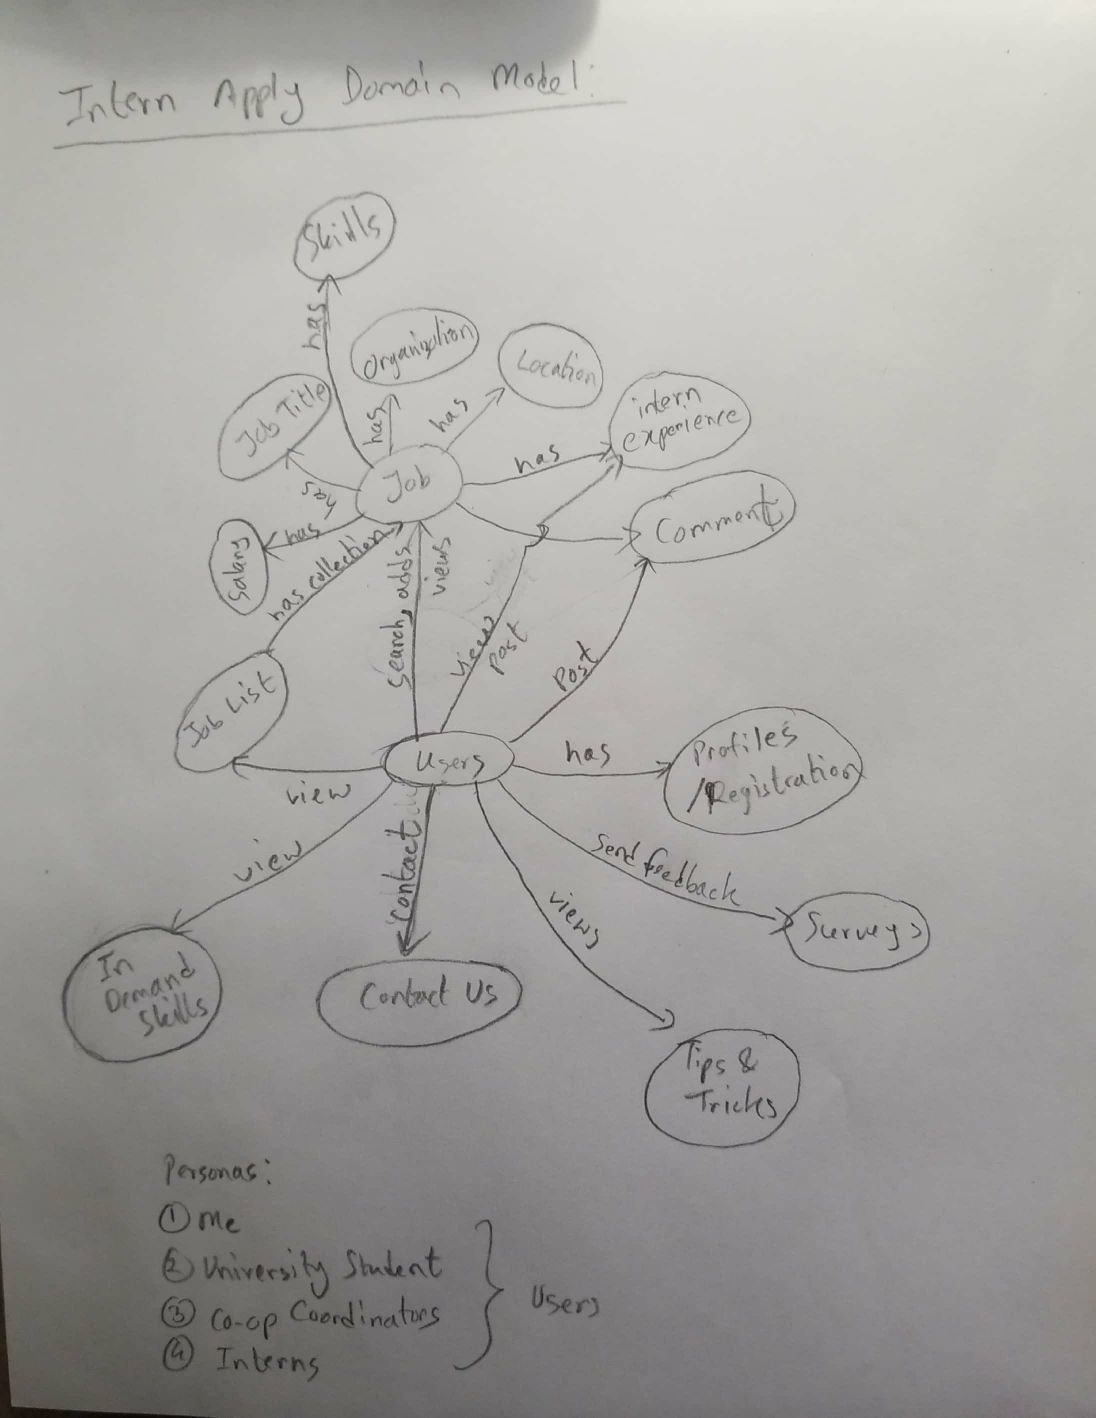 Intern Apply Domain Model:
Skills
has
Organization
Location
Job Title
has
has
intern
experience
has
Job
has
Comment
Salary
has
has collection
search, adds
views
view
post
Post
Job List
Users
has
Profiles
/Registration
view
view
contact
views
Send feedback
Surveys
In
Demand
Skills
Contact Us
Tips &
Tricks
Personas:
① Me
② University Student
③ Co-op Coordinators
④ Interns
Users